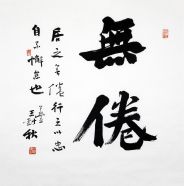 無倦
居之無倦行之以忠
自不懈怠也